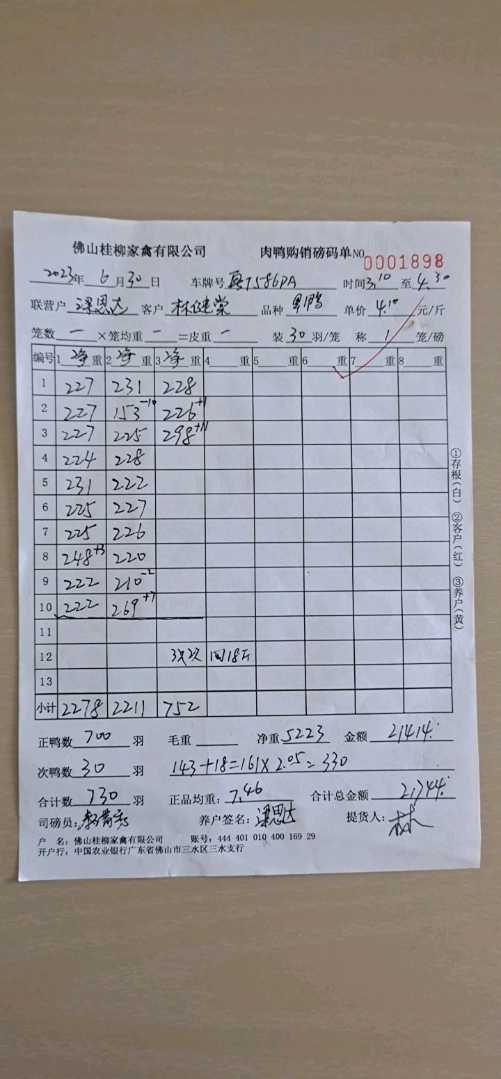 佛山桂柳家禽有限公司 肉鸭购销磅码单NO 0001898
2023年 6月30日 车牌号 7586DA 时间3.10至4.30
联营户 梁恩达 客户 林健荣 品种 单价 4.10 元/斤
笼数 一 ×笼均重 一 =皮重 一 装 30 羽/笼 称 1 笼/磅
编号 1 净 重 2 净 重 3 净 重 4 重 5 重 6 重 7 重 8 重
1 227 231 228
2 227 153-10 226+1
3 227 225 298+11
4 224 228
5 231 222
6 225 227
7 225 226
8 248+3 220
9 222 210-2
10 222 269+7
11
12 18斤
13
小计 2278 2211 752
①存根(白) ②客户(红) ③养户(黄)
正鸭数 700 羽 毛重 净重 5223 金额 21414.
次鸭数 30 羽 143+18=161×2.05=330
合计数 730 羽 正品均重: 7.46 合计总金额 21744.
司磅员: 养户签名: 梁恩达 提货人: 林
户 名: 佛山桂柳家禽有限公司 账号: 444 401 010 400 169 29
开户行: 中国农业银行广东省佛山市三水区三水支行